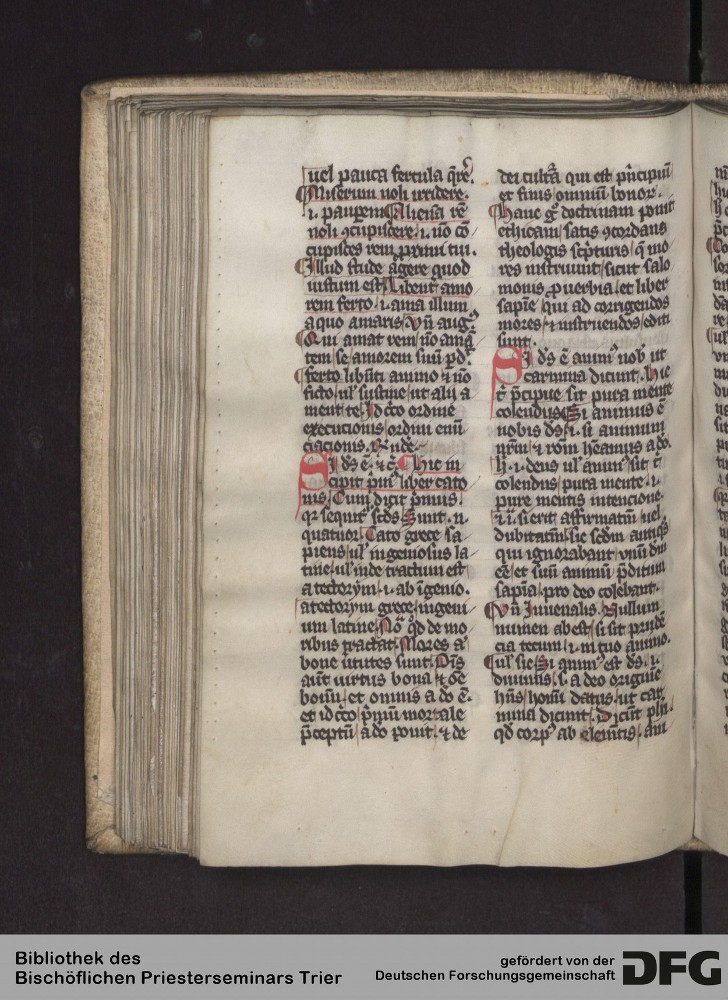 uel pauca fercula q̄re᷒
Miserum noli irridere.
.i. pauperem Aliena rē
noli ꝯcupiscere .i. nō cō
cupisces rem proximi tui.
Illud stude agere quod
iustum est. Libent̉ amo
rem ferto .i. ama illum
a quo amaris. Vn̄ aug᷒
Qui amat rem nō amā
tem se amorem suū ꝑd̓.
ferto libēti animo ⁊ nō
ficto ul̓ sustine ut alij a
ment te. Id cc̓o ordine
executionis ordini enū
ciacionis. Vnde.
Si ds̄ ē. ⁊ c̄. Hic in
cipit pm̓ liber cato
nis. Cum dicit primus.
qr̓ sequit̓ scd̄s Sunt .n.
quatuor. Cato grece sa
piens ul̓ ingeniosus la
tine. ul̓ inde tractum est
a .i. ab īgenio.
grece. ingeni
um latine. Nō q̄d de mo
ribus tractat. Mores a̓
bone v̓tutes sunt. Dn̄s
aut̄ uirtus bona ⁊ oē
bonū. et omnis a do ē.
et id cc̓o pm̓ū mortale
p̄ceptū a do ponit. ⁊ de
dei cultr̄a qui est pn̓cipiū
et finis omniū bonor̄.
Hanc g̊ doctrinam ponit
ethicam. satis ꝯcordans
theologis scpt̓uris. q̄ mo
res instruunt. sicut salo
monis ꝓuerbia. et liber
sapīe qui ad corrigendos
mores ⁊ instruendos editi
sunt.
Si ds̄ ē anim̓ nob̓ ut
carmina dicunt. Hic
t̓ p̄cipue sit pura mente
colendus. Si animus ē
nobis ds̄ .i. si animum
nr̄m ⁊ rōm heamus a do.
h̓ .i. deus ul̓ anim̓ sit t̓
colendus pura mente .i.
pure mentis intencione.
sierit affirmatiū uel
dubitatiū. sic scdm̄ antiq̓s
qui ignorabant unū dm̄
eē. et suū animū p̄ditum
sapīa pro deo colebant.
Vn̄ Iuuenalis. Nullum
numen abest. si sit prudē
cia tecum .i. in tuo animo.
ul̓ sic. Si anim̓ est ds̄ .i.
diuinus .s. a deo originē
hn̄s homī datus. ut car
mina dicunt. Dicūt phi.
qd̓ corp᷒ ab elemētis. ani
Bibliothek des
Bischöflichen Priesterseminars Trier
gefördert von der
Deutschen Forschungsgemeinschaft
DFG